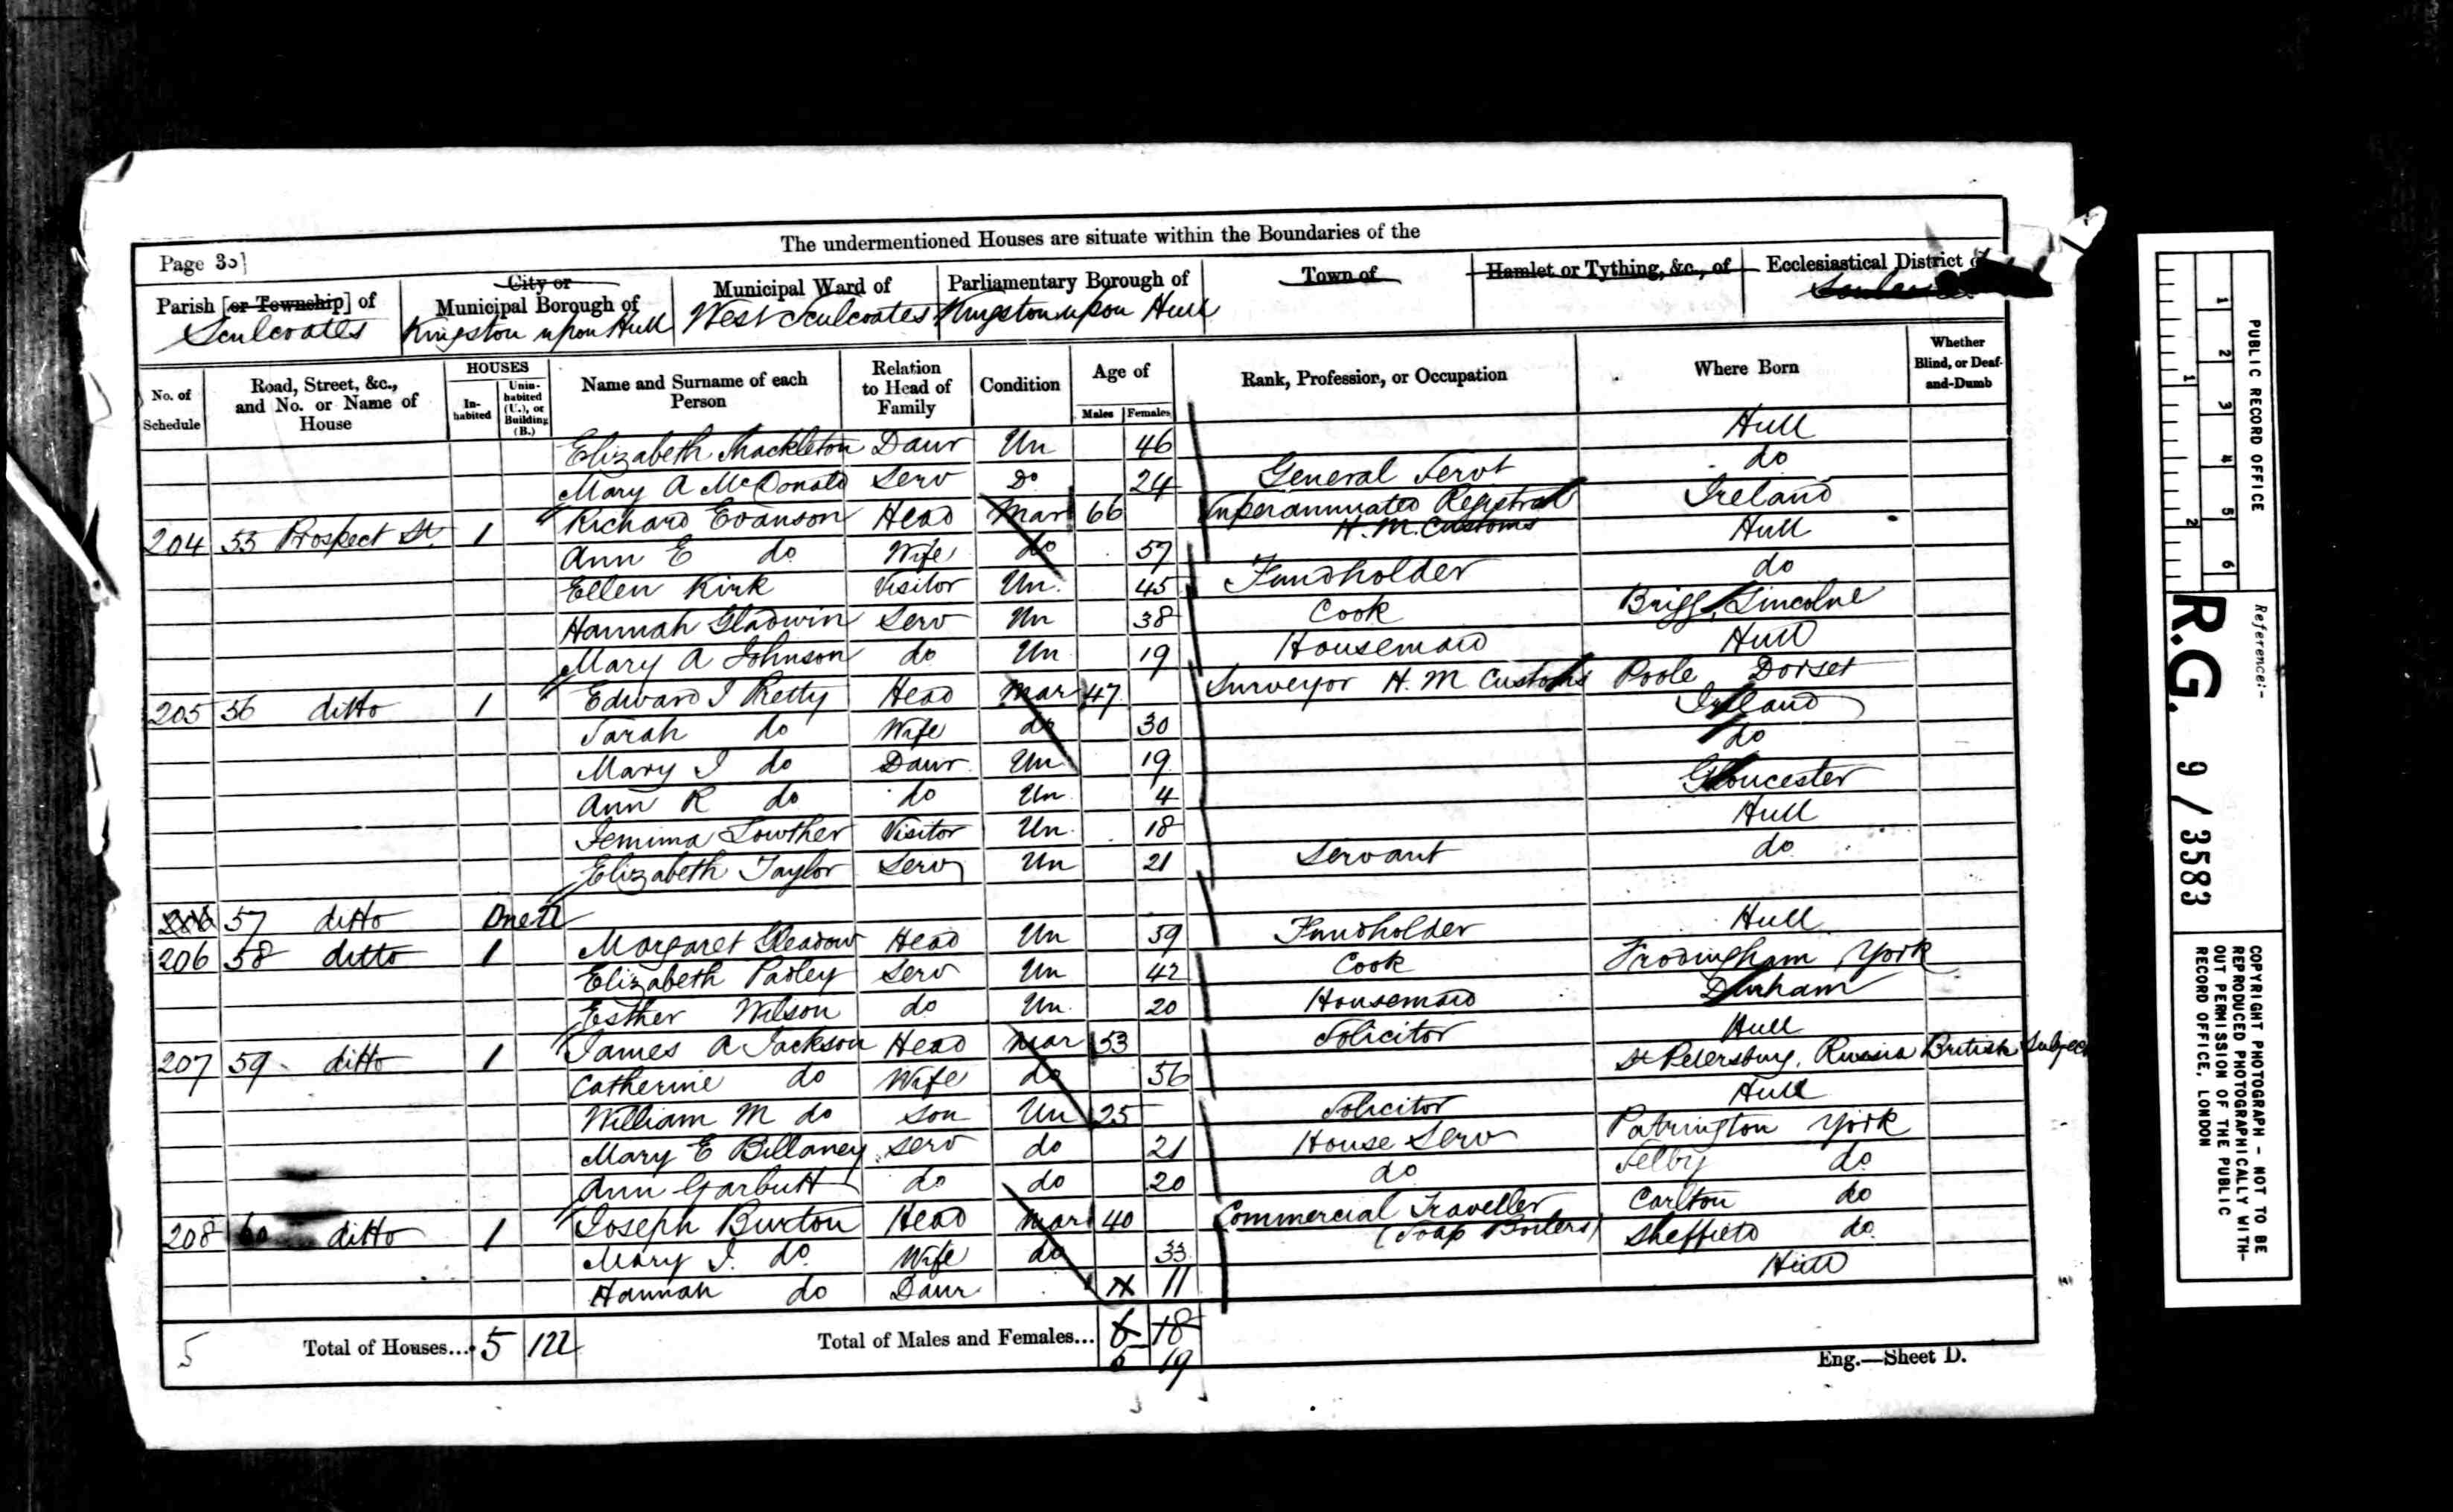 The undermentioned Houses are situate within the Boundaries of the
Page 30]
Parish [or Township] of Sculcoates
City or Municipal Borough of Kingston upon Hull
Municipal Ward of West Sculcoates
Parliamentary Borough of Kingston upon Hull
Town of
Hamlet or Tything, &c., of
Ecclesiastical District
No. of Schedule
Road, Street, &c., and No. or Name of House
HOUSES
In-habited
Unin-habited (U.), or Building (B.)
Name and Surname of each Person
Relation to Head of Family
Condition
Age of
Males
Females
Rank, Profession, or Occupation
Where Born
Whether Blind, or Deaf-and-Dumb
Elizabeth Shackleton Daur Un 46 Hull
Mary A McDonald Serv Do 24 General Servt do
204 55 Prospect St. 1 Richard Evanson Head Mar 66 Superannuated Registrar H.M. Customs Ireland
Ann E do Wife do 57 Hull
Ellen Kirk Visitor Un 45 Fundholder do
Hannah Gladwin Serv Un 38 Cook Brigg, Lincolne
Mary A Johnson do Un 19 Housemaid Hull
205 56 ditto 1 Edward J Pretty Head Mar 47 Surveyor H. M Customs Poole Dorset
Sarah do Wife do 30 Ireland
Mary J do Daur Un 19 do
Ann R do do Un 4 Gloucester
Jemima Lowther Visitor Un 18 Hull
Elizabeth Taylor Serv Un 21 Servant do
206 57 ditto
206 58 ditto 1 Margaret Gleadow Head Un 39 Fundholder Hull
Elizabeth Padley Serv Un 42 Cook Frodingham York
Esther Wilson do Un 20 Housemaid Durham
207 59 ditto 1 James A Jackson Head Mar 53 Solicitor Hull
Catherine do Wife do 56 St Petersburg, Russia British Subject
William M do Son Un 25 Solicitor Hull
Mary E Billaney serv do 21 House Serv Patrington York
Ann Garbutt do do 20 do Selby do
208 60 ditto 1 Joseph Burton Head Mar 40 Commercial Traveller (Soap Boilers) Carlton do
Mary J. do Wife do 33 Sheffield do
Hannah do Daur 11 Hull
5 Total of Houses... 5 1U Total of Males and Females... 6 18
5 19
Eng.—Sheet D.
PUBLIC RECORD OFFICE
1 2 3 4 5 6
1 2
Reference:-
R.G. 9/3583
COPYRIGHT PHOTOGRAPH - NOT TO BE
REPRODUCED PHOTOGRAPHICALLY WITH-
OUT PERMISSION OF THE PUBLIC
RECORD OFFICE, LONDON